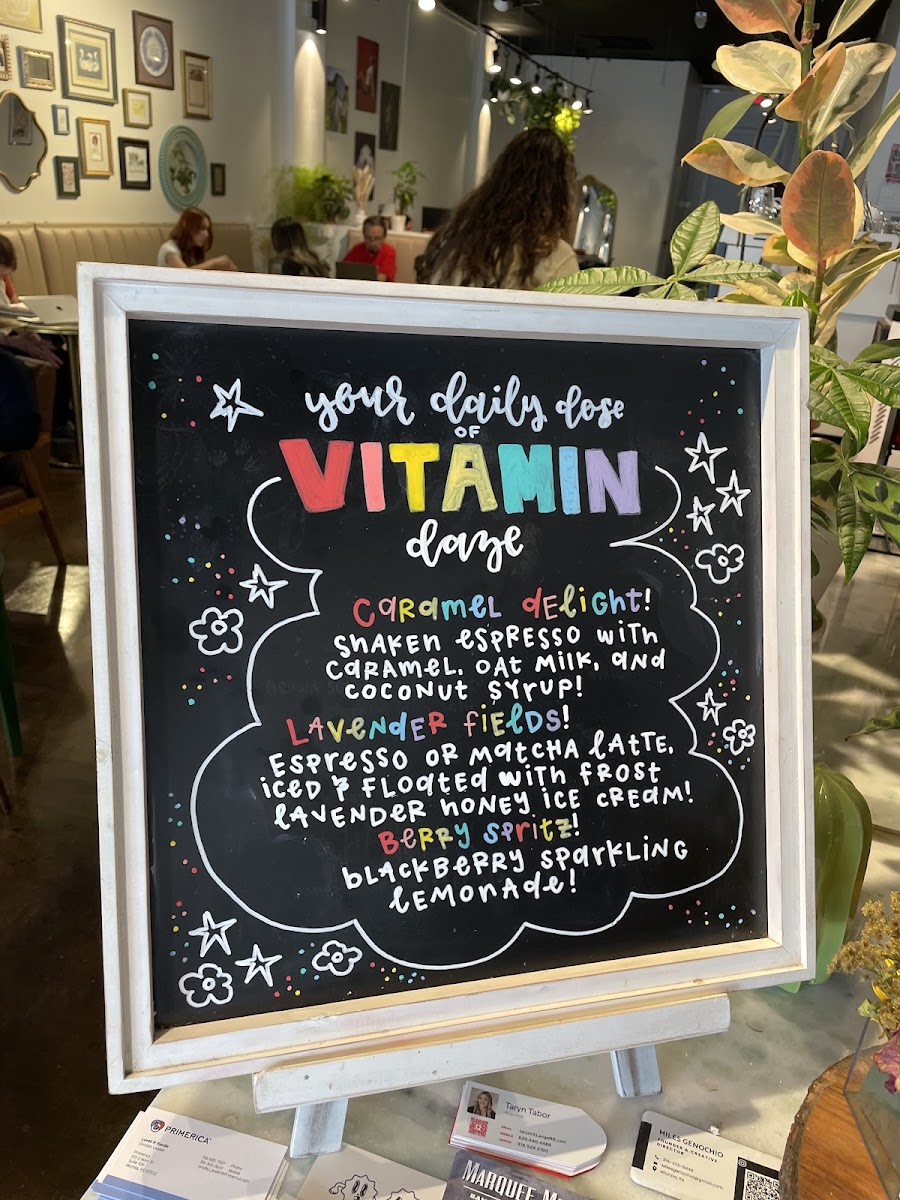 your daily dose
OF
VITAMIN
daze
CARAMEL dELIGHT!
SHAKEN ESPRESSO WITH
CARAMEL, OAT MILK, AND
COCONUT SYRUP!
LAVENDER FIELDS!
ESPRESSO OR MATCHA LATTE,
ICED & FLOATED WITH FROST
LAVENDER HONEY ICE CREAM!
BERRY SPRITZ!
BLACKBERRY SPARKLING
LEMONADE!
PRIMERICA
Taryn Tabor
MILES GENOCHIO
FOUNDER & CREATIVE
DIRECTOR
MARQUEE